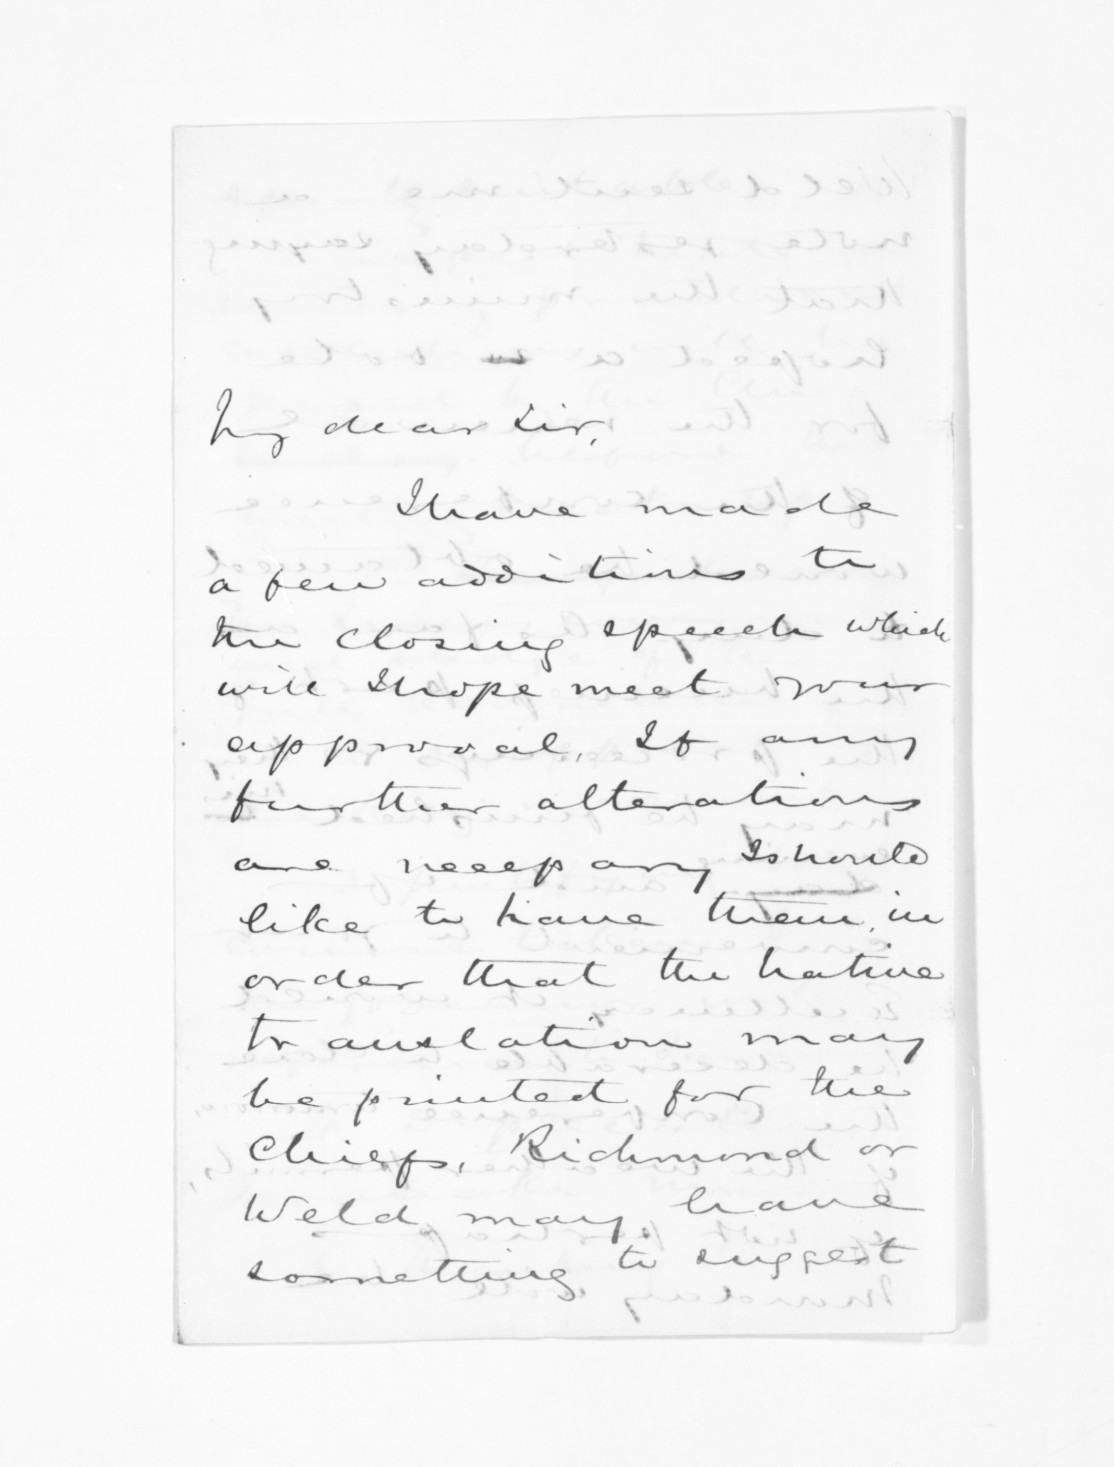 My dear Sir,
I have made
a few additions to
the closing speech which
will I hope meet your
approval. If any
further alterations
are necessary I should
like to have them, in
order that the Native
translation may
be printed for the
Chiefs. Richmond or
Weld may have
something to suggest